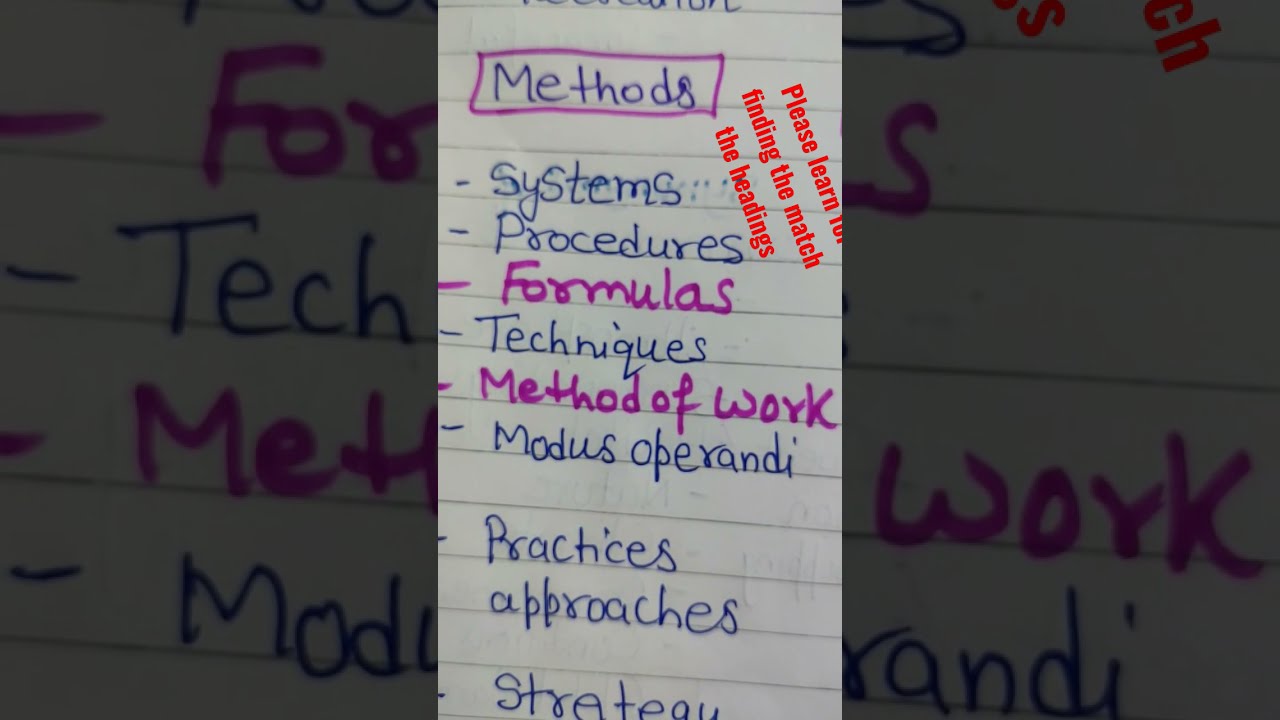 Methods
Please learn for
finding the match
the headings
- Systems
- Procedures
- Formulas
- Techniques
- Method of work
- Modus operandi
- Practices
approaches
- Strategy